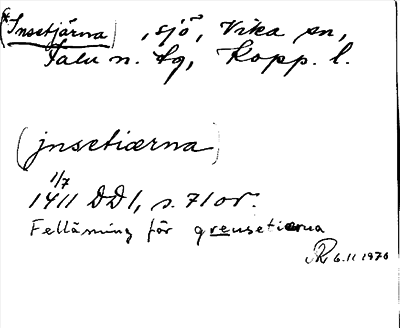 (*Insetjärna), sjö, Vika sn,
Falu n. tg, Kopp. l.
(jnsetiærna)
1/7
1411 DD 1, s. 71 or.
Felläsning för greusetiærna
6.11.1970